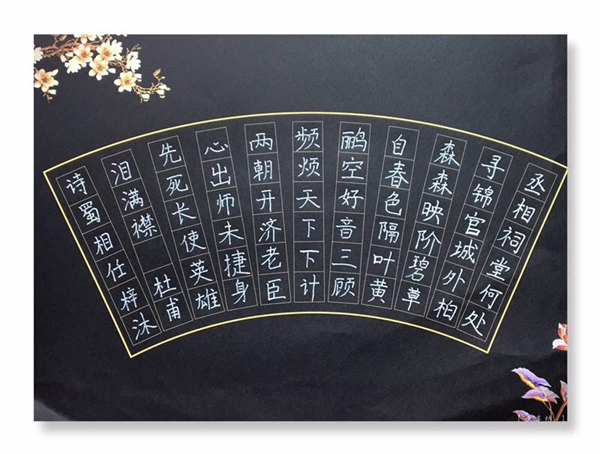 丞相祠堂何处
寻锦官城外柏
森森映阶碧草
自春色隔叶黄
鹂空好音三顾
频烦天下下计
两朝开济老臣
心出师未捷身
先死长使英雄
泪满襟 杜甫
诗蜀相仕梓沐